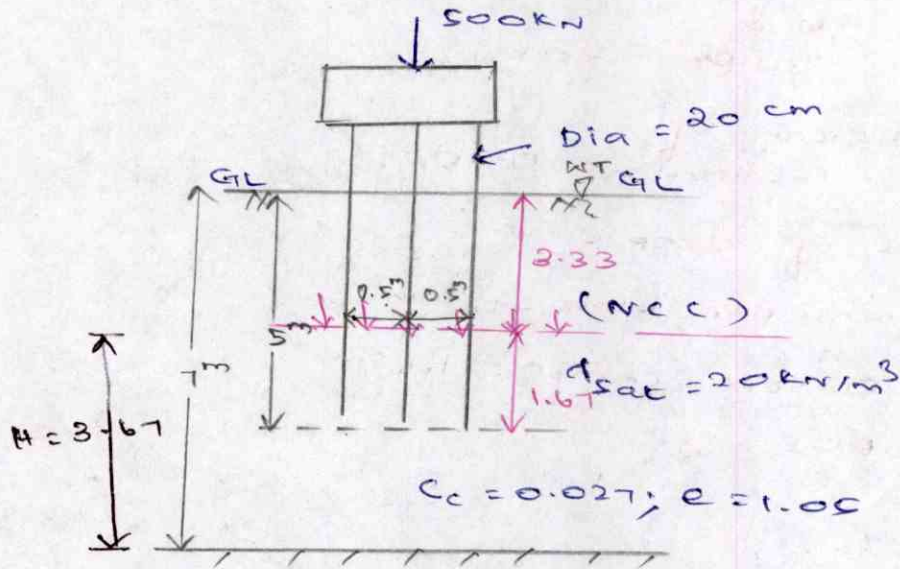 500KN
Dia = 20 cm
WT
GL GL
3.33
0.5m 0.5m
(NCC)
5m
7m
γsat = 20KN/m³
1.67
H = 3.67
Cc = 0.027; e = 1.05